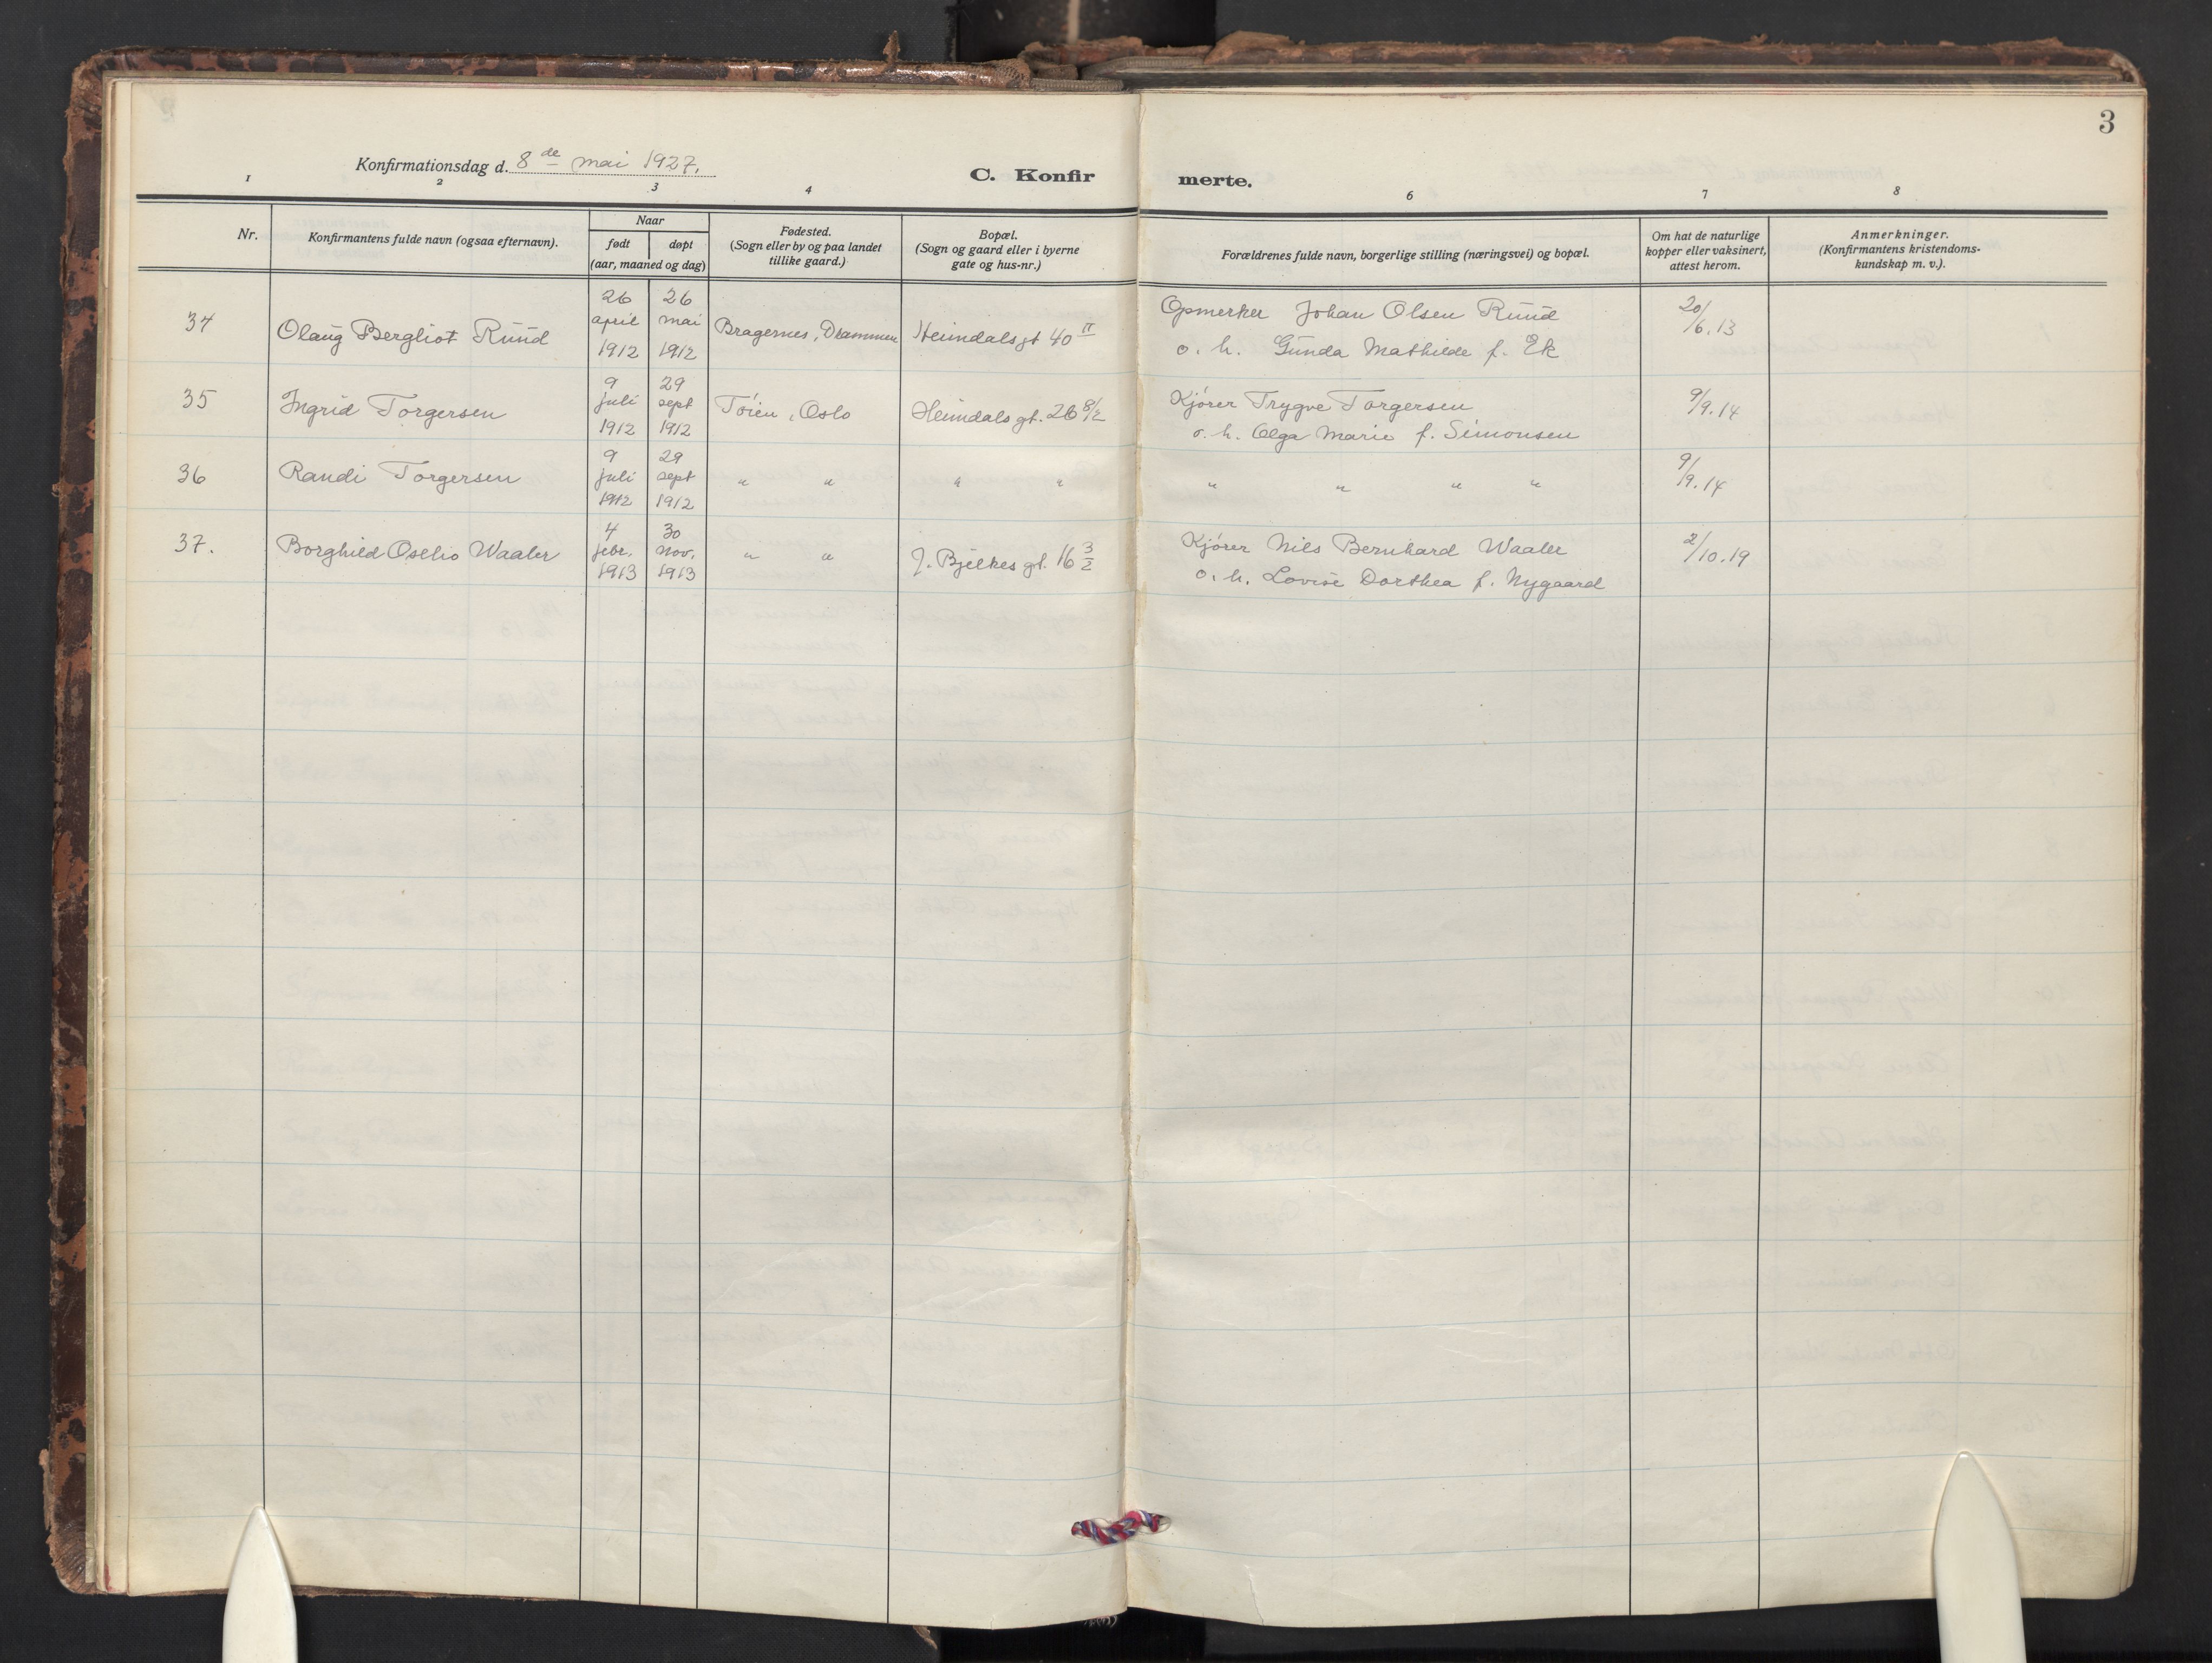 3
Konfirmationsdag d. 8de mai 1927.
C. Konfirmerte.
1 2 3 4 6 7 8
Nr.
Konfirmantens fulde navn (ogsaa efternavn).
Naar
født døpt
(aar, maaned og dag)
Fødested.
(Sogn eller by og paa landet
tillike gaard.)
Bopæl.
(Sogn og gaard eller i byerne
gate og hus-nr.)
Forældrenes fulde navn, borgerlige stilling (næringsvei) og bopæl.
Om hat de naturlige
kopper eller vaksinert,
attest herom.
Anmerkninger.
(Konfirmantens kristendoms-
kundskap m. v.).
34 Olaug Bergliot Ruud
26 april 1912
26 mai 1912
Bragernes, Drammen
Heimdalsgt 40 II
Opmerker Johan Olsen Ruud
o. h. Gunda Mathilde f. Ek
20/6.13
35 Ingrid Torgersen
9 juli 1912
29 sept 1912
Tøien, Oslo
Heimdalsgt. 26 8/2
Kjører Trygve Torgersen
o. h. Olga Marie f. Simonsen
9/9.14
36 Randi Torgersen
9 juli 1912
29 sept 1912
" "
" "
" " " "
9/9.14
37. Borghild Oselio Waaler
4 febr. 1913
30 nov. 1913
" "
J. Bjelkes gt. 16 3/2
Kjører Nils Bernhard Waaler
o. h. Lovise Dorthea f. Nygaard
2/10.19